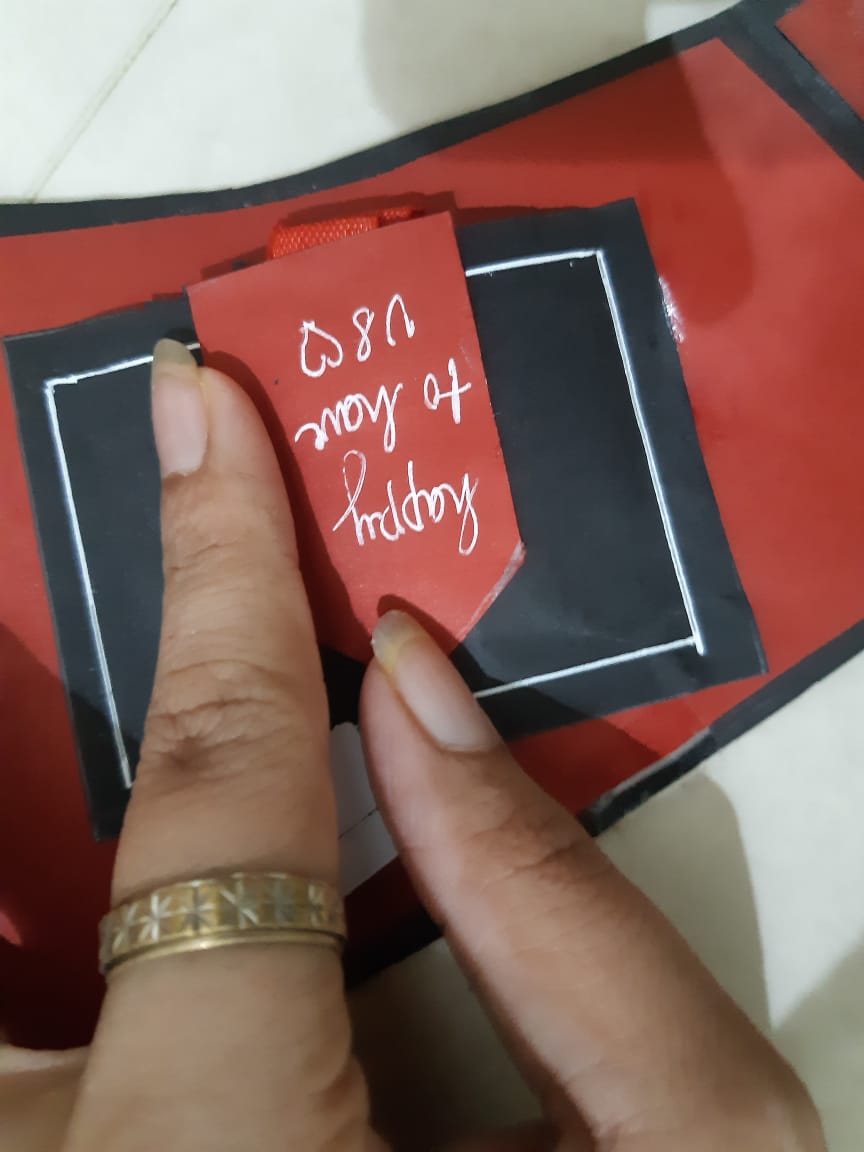 happy
to have
U 8 ♡